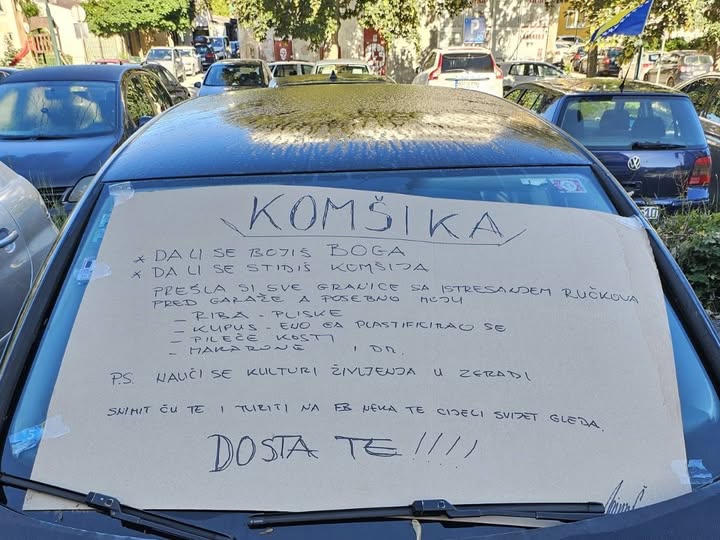 KOMŠIKA
* DA LI SE BOJIŠ BOGA
* DA LI SE STIDIŠ KOMŠIJA
PREŠLA SI SVE GRANICE SA ISTRESANJEM RUČKOVA
PRED GARAŽE A POSEBNO MOJU
- RIBA - PLISKE
- KUPUS - ENO GA PLASTIFICIRAO SE
- PILEĆE KOSTI
- MAKARONE I DR.
P.S. NAUČI SE KULTURI ŽIVLJENJA U ZGRADI
SNIMIT ĆU TE I TURITI NA FB NEKA TE CIJELI SVIJET GLEDA.
DOSTA TE ////